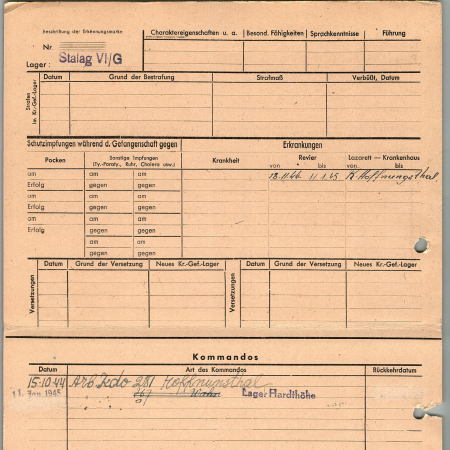 Beschriftung der Erkennungsmarke
Nr.
Lager: Stalag VI/G
Charaktereigenschaften u. a. Besond. Fähigkeiten Sprachkenntnisse Führung
Strafen im Kr.-Gef.-Lager
Datum Grund der Bestrafung Strafmaß Verbüßt, Datum
Schutzimpfungen während d. Gefangenschaft gegen Erkrankungen
Pocken Sonstige Impfungen Krankheit Revier Lazarett — Krankenhaus
(Ty.-Paraty., Ruhr, Cholera usw.) von bis von bis
am am am 18.11.44 11.1.45 Hoffnungsthal
Erfolg gegen gegen
am am am
Erfolg gegen gegen
am am am
Erfolg gegen gegen
am am
gegen gegen
Versetzungen
Datum Grund der Versetzung Neues Kr.-Gef.-Lager
Versetzungen
Datum Grund der Versetzung Neues Kr.-Gef.-Lager
Kommandos
Datum Art des Kommandos Rückkehrdatum
15.10.44 Arb. Kdo 281 Hoffnungsthal
11. Jan. 1945 Wahn Lager Hardthöhe